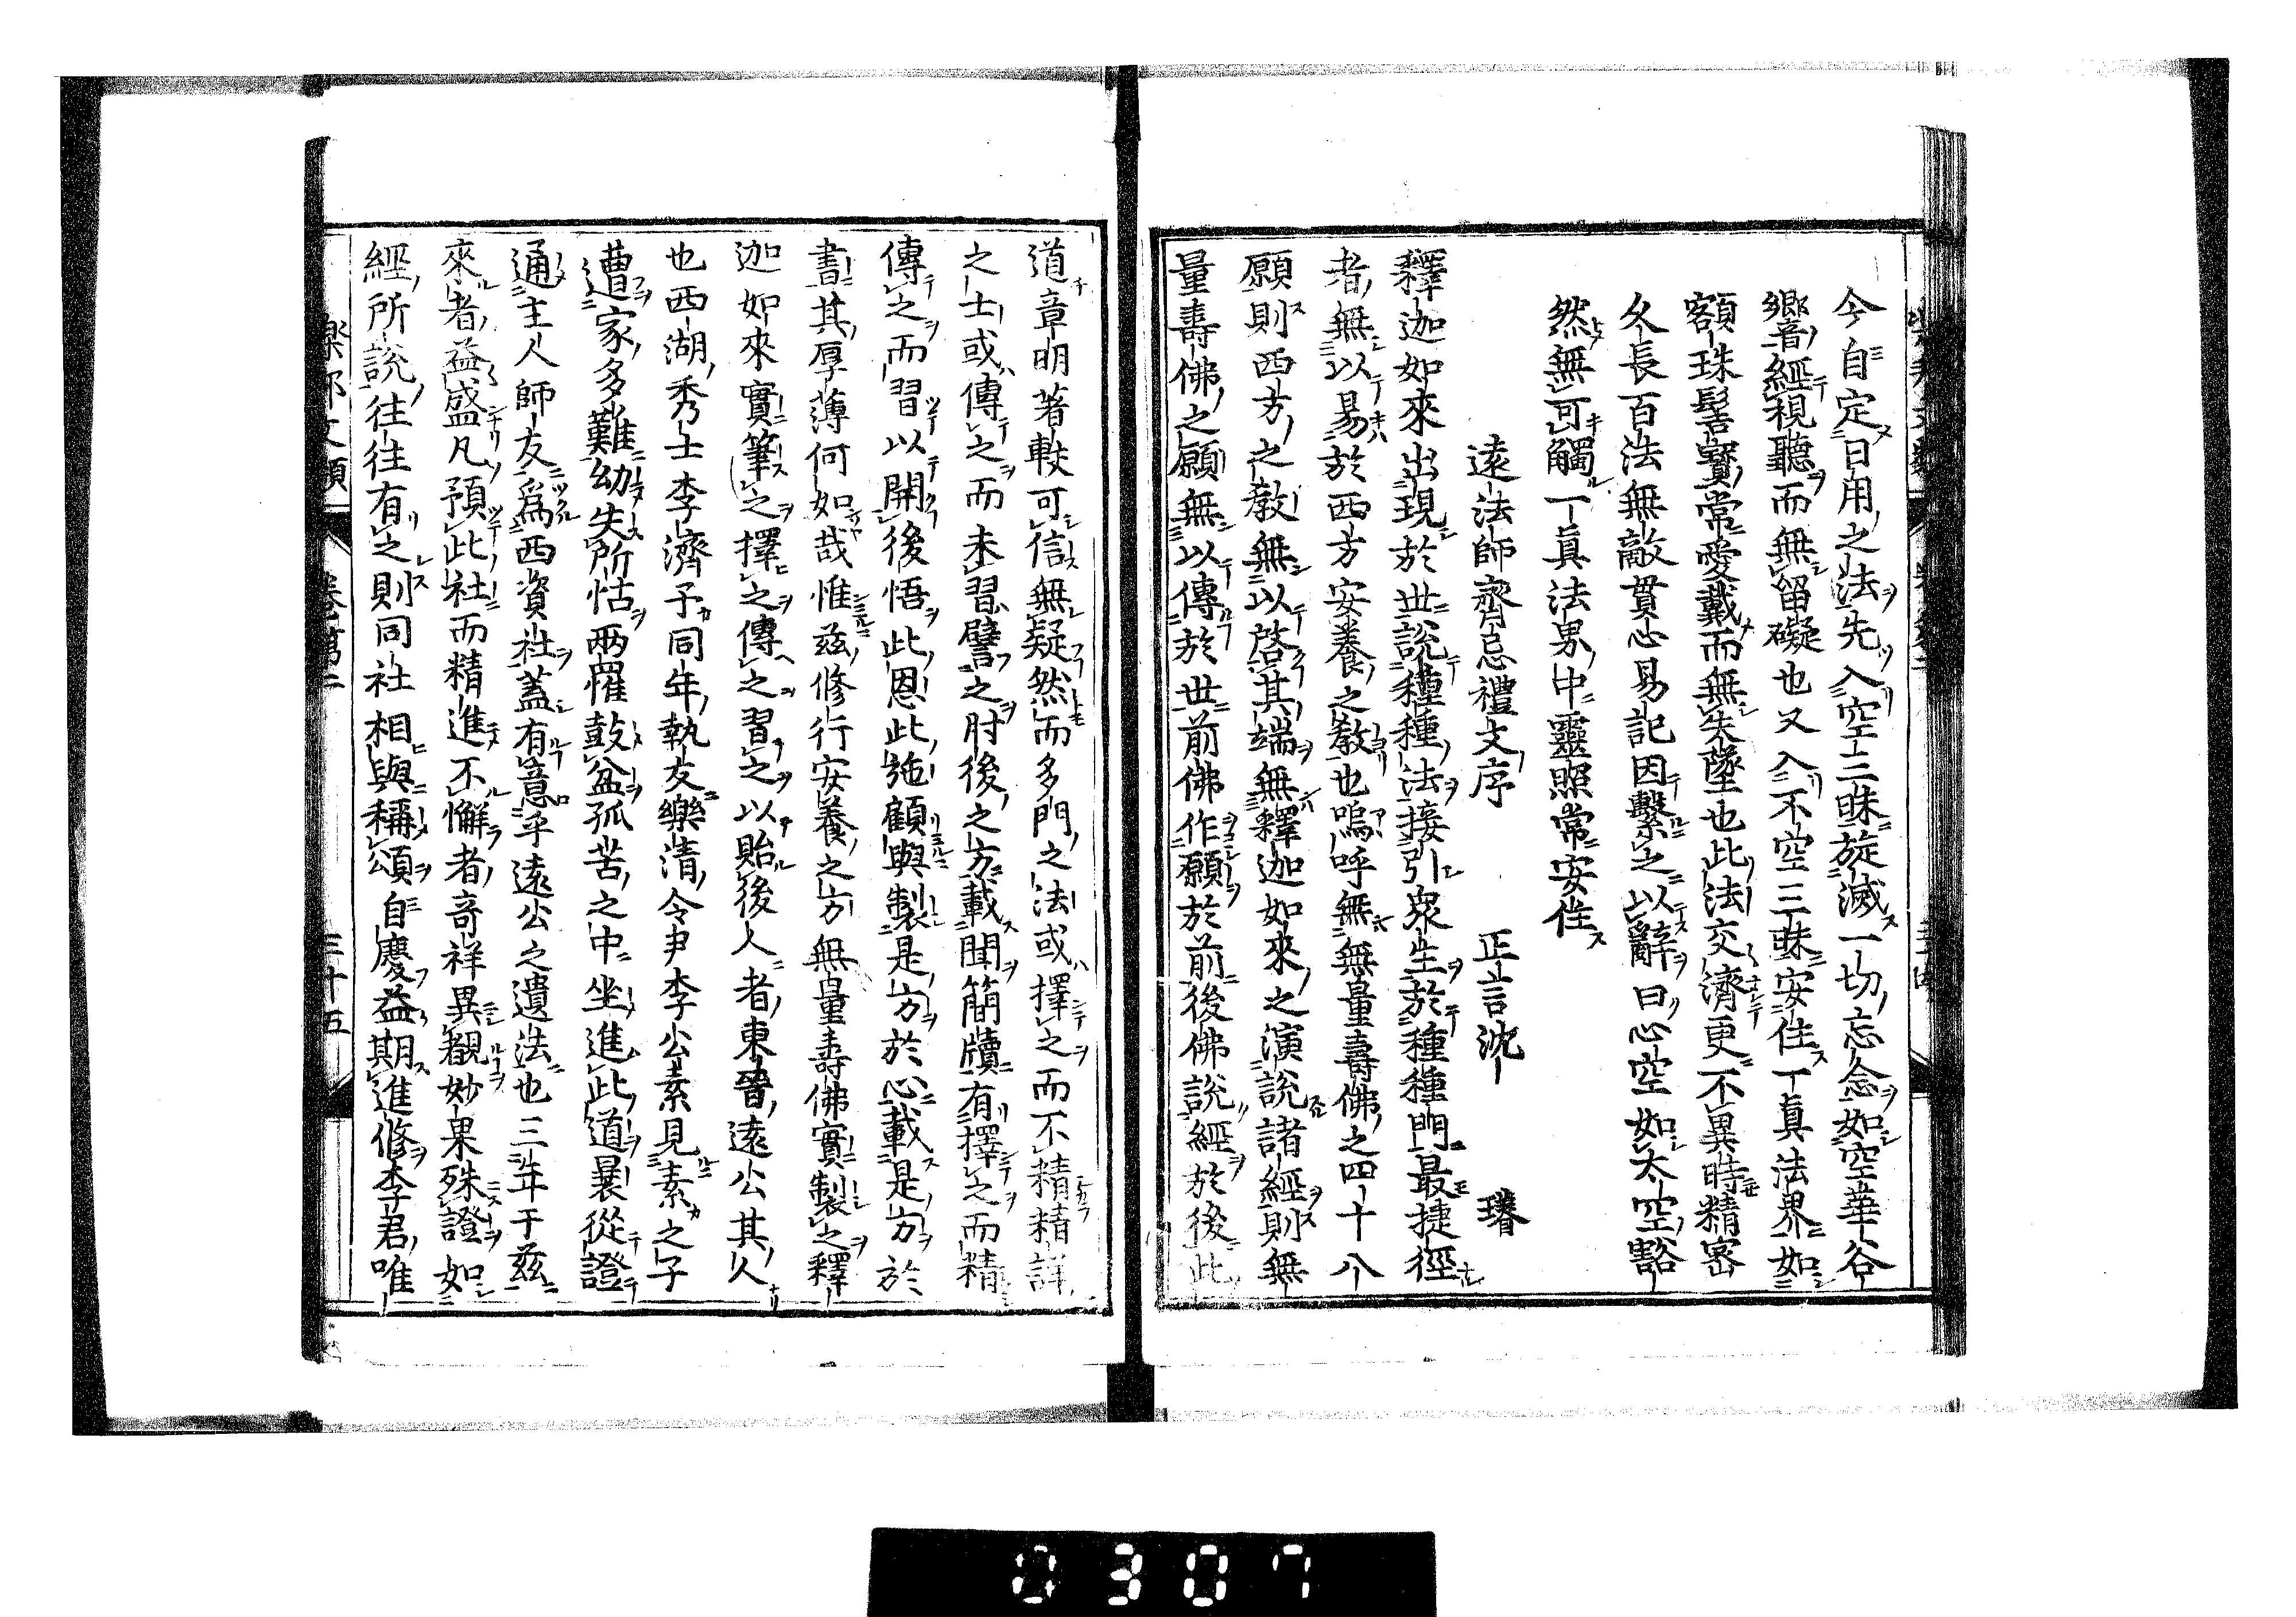 今自定日用之法先入空三昧旋滅一切忘念如空華谷
響經視聽而無留礙也又入不空三昧安住一眞法界如
額珠髻寶常愛戴而無失墜也此法交濟更不異時精密
久長百法無敵貫心易記因繫之以辭曰心空如太空豁
然無可觸一眞法界中靈照常安住
遠法師齋忌禮文序 正言沈 璿
釋迦如來出現於世說種種法接引衆生於種種門最捷徑
者無以易於西方安養之教也嗚呼無無量壽佛之四十八
願則西方之教無以啓其端無釋迦如來之演說諸經則無
量壽佛之願無以傳於世前佛作願於前後佛說經於後此
道章明著較可信無疑然而多門之法或擇之而不精精詳
之士或傳之而未習譬之肘後之方載聞簡牘有擇之而精
傳之而習以開後悟此恩此施顧與製是方於心載是方於
書其厚薄何如哉惟茲修行安養之方無量壽佛實製之釋
迦如來實筆之擇之傳之習之以貽後人者東晉遠公其人
也西湖秀士李濟予同年執友樂淸令尹李公素見素之子
遭家多難幼失所怙兩罹鼓盆孤苦之中坐進此道曩從證
通主人師友爲西資社蓋有意乎遠公之遺法也三年于茲
來者益盛凡預此社而精進不懈者奇祥異覩妙果殊證如
經所說往往有之則同社相與稱頌自慶益期進修李君唯
樂邦文類 卷第二 三十五
0307